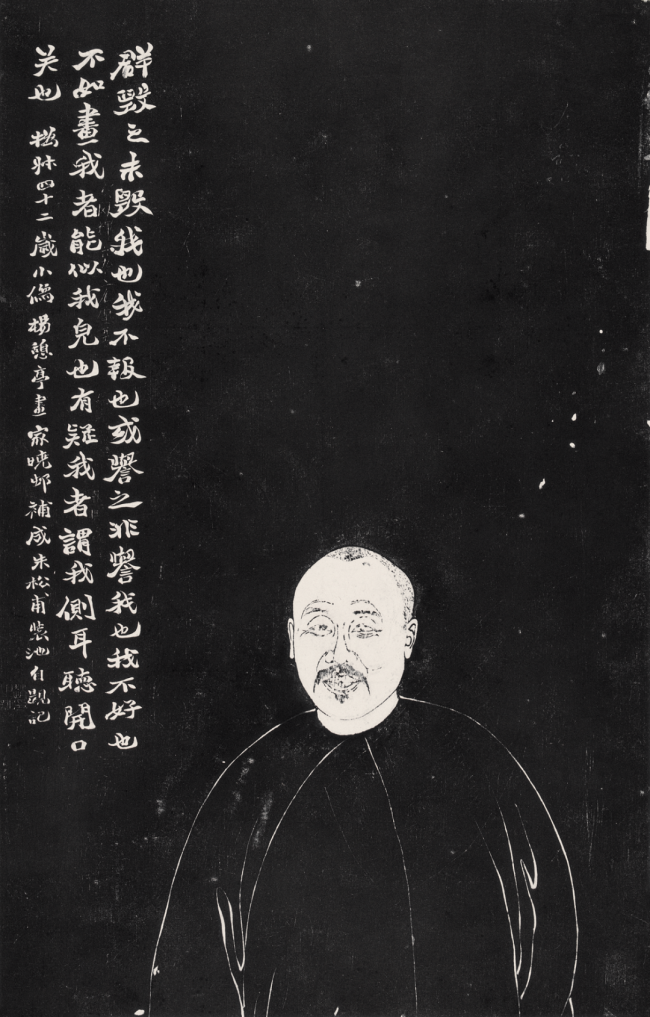 群毀之未毀我也我不報也或譽之非譽我也我不好也
不如畫我者能似我皃也有疑我者謂我側耳聽開口
笑也 板畊四十二歲小像楊憩亭畫家曉邨補成朱松甫裝池自題記